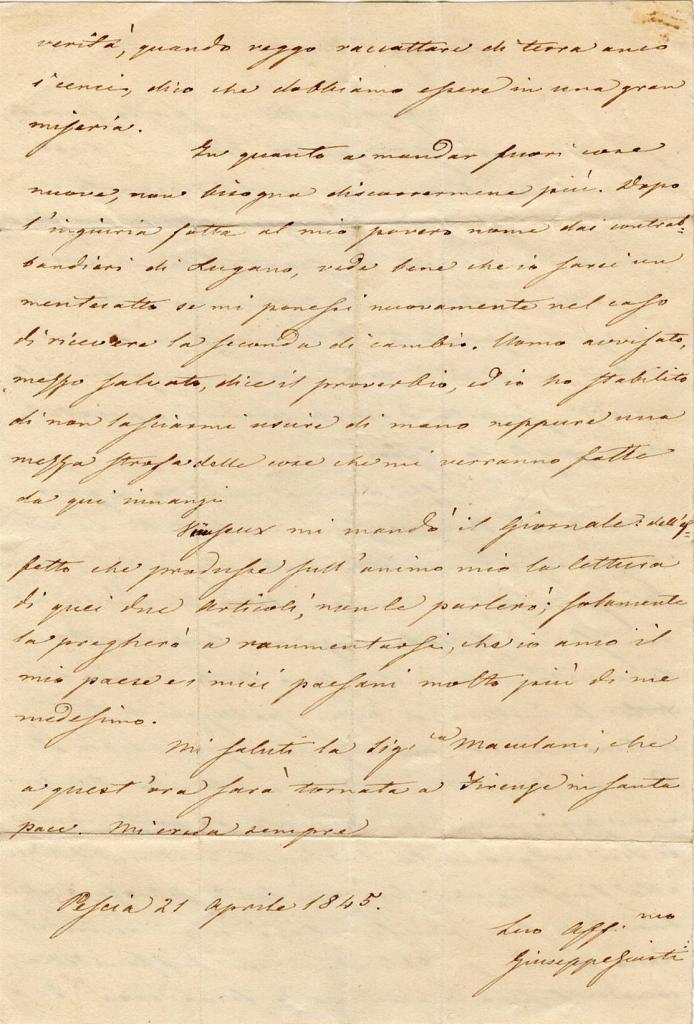 verità, quando veggo raccattare di terra anco
i cenci, dico che dobbiamo essere in una gran
miseria.
In quanto a mandar fuori cose
nuove, non bisogna discorrermene più. Dopo
l'ingiuria fatta al mio povero nome dai contrab-
bandieri di Lugano, vede bene che io sarei un
mentecatto se mi ponessi nuovamente nel caso
di ricevere la seconda di cambio. Uomo avvisato,
mezzo salvato, dice il proverbio, ed io ho stabilito
di non lasciarmi uscire di mano neppure una
mezza strofa delle cose che mi verranno fatte
da qui innanzi
Vieusseux mi mandò il Giornale: dell'ef-
fetto che produsse sull'animo mio la lettura
di quei due articoli, non le parlerò; solamente
la pregherò a rammentarsi, che io amo il
mio paese e i miei paesani molto più di me
medesimo.
Mi saluti la Sig.ra Maculani, che
a quest'ora sarà tornata a Firenze in santa
pace. Mi creda sempre
Pescia 21 Aprile 1845.
Suo Aff.mo
Giuseppe Giusti